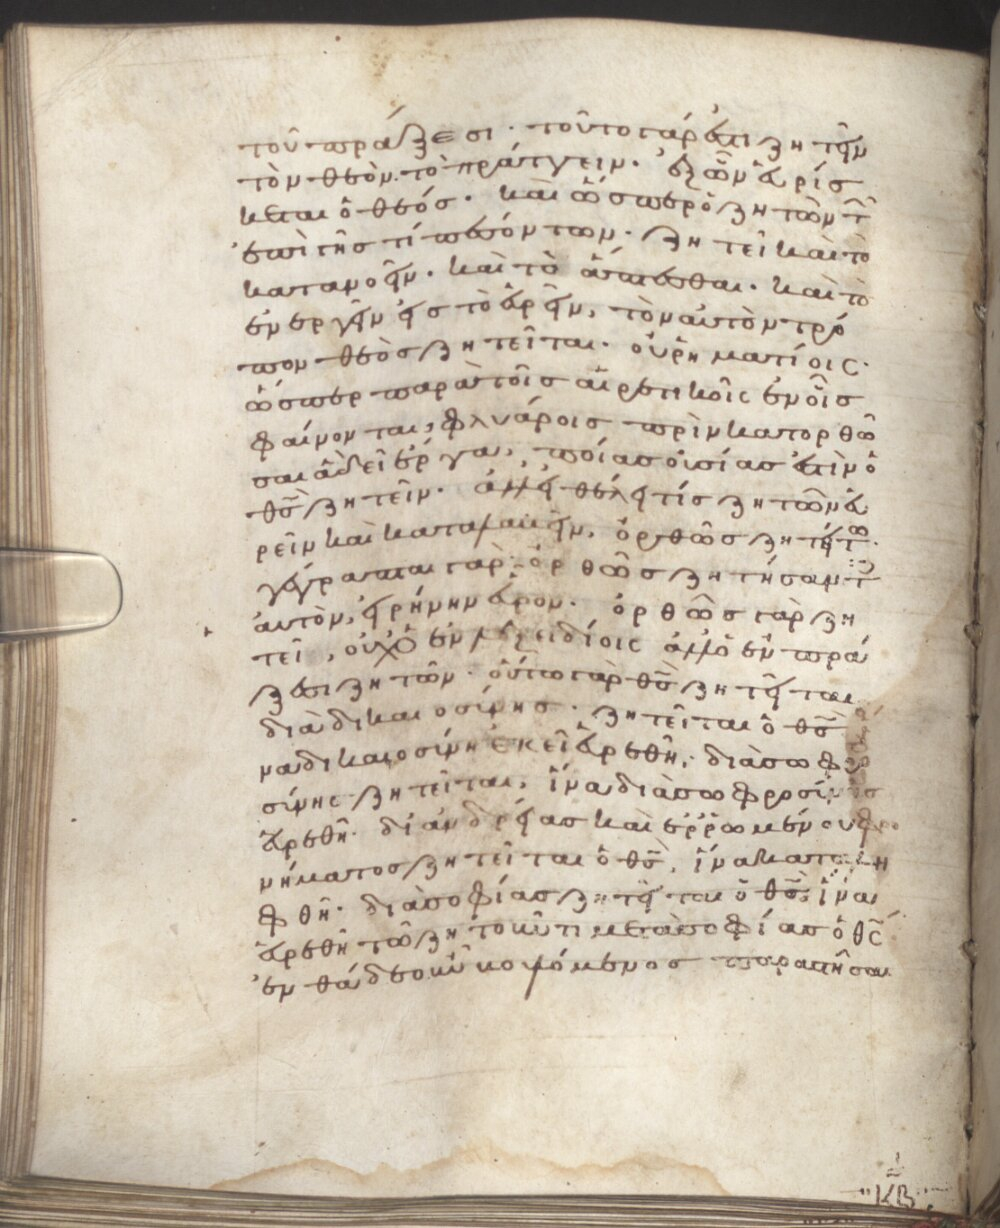 τοῦ πράξεσι· τοῦτο γάρ ἐστι ζητεῖν
τὸν θεόν· τὸ πράττειν· ἐξ ὧν εὑρίσ
κεται ὁ θεός· καὶ ὥσπερ ὁ ζητῶν
ἐπὶ τῆς τί πεσόντων· ζητεῖ καὶ τὸ
κατανοεῖν· καὶ τὸ ἅπτεσθαι· καὶ τὸ
ἐνεργεῖν εἰς τὸ εὑρεῖν, τὸν αὐτὸν τρό
πον θεὸς ζητεῖται· οὐ ῥηματίοις·
ὥσπερ παρὰ τοῖς αἱρετικοῖς ἐν οἷς
φαίνονται, φλυάροις πρὶν κατορθῶ
σαι ἃ δεῖ ἔργα, ποίας οὐσίας ἐστὶν ὁ
θς ζητεῖν· ἀλλ' εἰ θέλει τίς ζητῶν εὑ
ρεῖν καὶ καταλαβεῖν, ὀρθῶς ζητείτω·
γέγραπται γάρ· ὀρθῶς ζητήσαντ
αὐτὸν, εἰρήνην εὗρον· ὀρθῶς γὰρ ζη
τεῖ, οὐχ ὁ ἐν λεξειδίοις ἀλλ' ὁ ἐν πρά
ξεσι ζητῶν· οὕτω γὰρ θς ζητεῖται
διὰ δικαιοσύνης· ζητεῖται ὁ θς
να δικαιοσύνη ἐκεῖ εὑρεθῇ, διὰ σωφρο
σύνης ζητεῖται, ἵνα διὰ σωφροσύνης
εὑρεθῇ· δι' ἀνδρείας καὶ ἐρρωμένου φρο
νήματος ζητεῖται ὁ θς, ἵνα καταλη
φθῇ· διὰ σοφίας ζητεῖται ὁ θς, ἵνα
εὑρεθῇ τῶ ζητοῦντι μετὰ σοφίας ὁ θς
ἐνθάδε οὖν κοψόμενος παραστῆσαι
ΚΒ